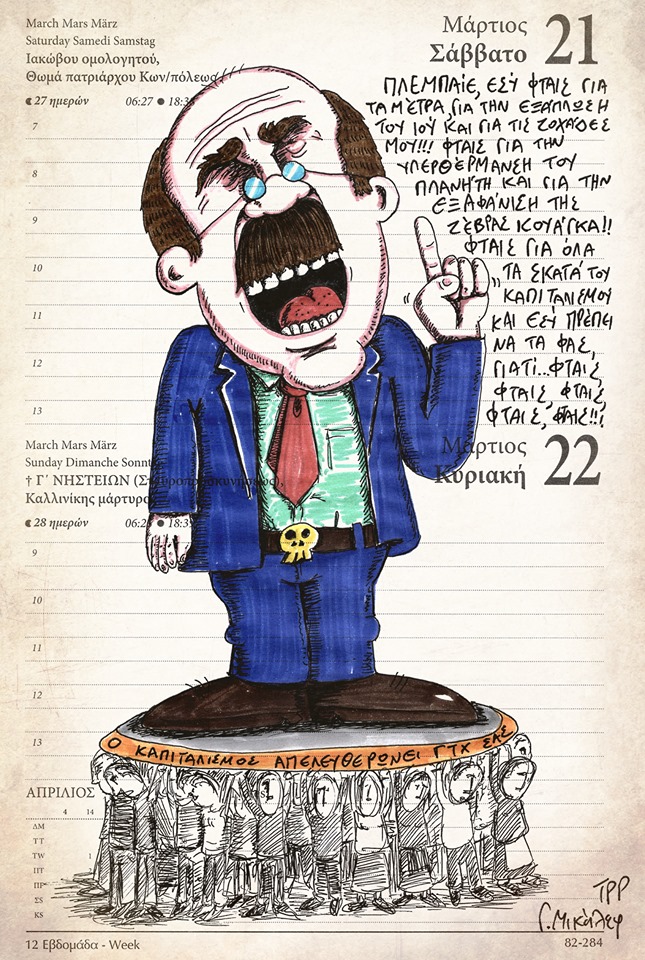 March Mars März
Saturday Samedi Samstag
Ιακώβου ομολογητού,
Θωμά πατριάρχου Κων/πόλεως
27 ημερών 06:27 18:3
Μάρτιος
Σάββατο
21
ΠΛΕΜΠΑΙΕ, ΕΣΥ ΦΤΑΙΣ ΓΙΑ
ΤΑ ΜΕΤΡΑ, ΓΙΑ ΤΗΝ ΕΞΑΠΛΩΣΗ
ΤΟΥ ΙΟΥ ΚΑΙ ΓΙΑ ΤΙΣ ΖΟΧΑΔΕΣ
ΜΟΥ!!! ΦΤΑΙΣ ΓΙΑ ΤΗΝ
ΥΠΕΡΘΕΡΜΑΝΣΗ ΤΟΥ
ΠΛΑΝΗΤΗ ΚΑΙ ΓΙΑ ΤΗΝ
ΕΞΑΦΑΝΙΣΗ ΤΗΣ
ΖΕΒΡΑΣ ΚΟΥΑΓΚΑ!!
ΦΤΑΙΣ ΓΙΑ ΟΛΑ
ΤΑ ΣΚΑΤΑ ΤΟΥ
ΚΑΠΙΤΑΛΙΣΜΟΥ
ΚΑΙ ΕΣΥ ΠΡΕΠΕΙ
ΝΑ ΤΑ ΦΑΣ,
ΓΙΑΤΙ...ΦΤΑΙΣ,
ΦΤΑΙΣ, ΦΤΑΙΣ,
ΦΤΑΙΣ, ΦΤΑΙΣ!!!
7
8
9
10
11
12
13
March Mars März
Sunday Dimanche Sonnt
† Γ΄ ΝΗΣΤΕΙΩΝ (Σταυροπροσκυνήσεως),
Καλλινίκης μάρτυρο
28 ημερών 06:2 18:3
Μάρτιος
Κυριακή
22
9
10
11
12
13
Ο ΚΑΠΙΤΑΛΙΣΜΟΣ ΑΠΕΛΕΥΘΕΡΩΝΕΙ ΓΤΧ ΣΑΣ
ΑΠΡΙΛΙΟΣ
4 14
ΔΜ
ΤΤ
TW 1
ΠΤ
ΠΡ
ΣS
ΚS
TPP
Γ. Μικάλεφ
12 Εβδομάδα - Week
82-284